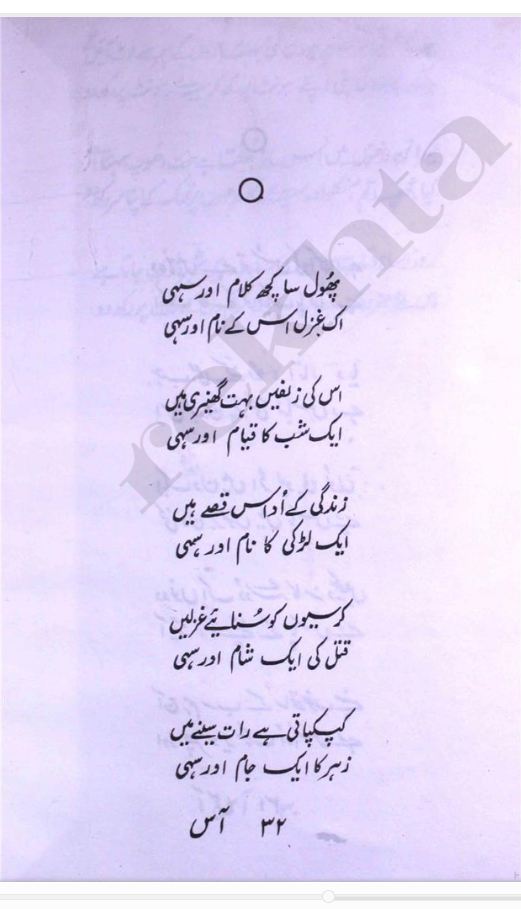 پھُول سا کچھ کلام اور سہی
اک غزل اس کے نام اور سہی
اس کی زلفیں بہت گھنیری ہیں
ایک شب کا قیام اور سہی
زندگی کے اُداس قصے ہیں
ایک لڑکی کا نام اور سہی
کرسیوں کو سُنائیے غزلیں
قتل کی ایک شام اور سہی
کپکپاتی ہے رات سینے میں
زہر کا ایک جام اور سہی
۳۲ آس
rekhta